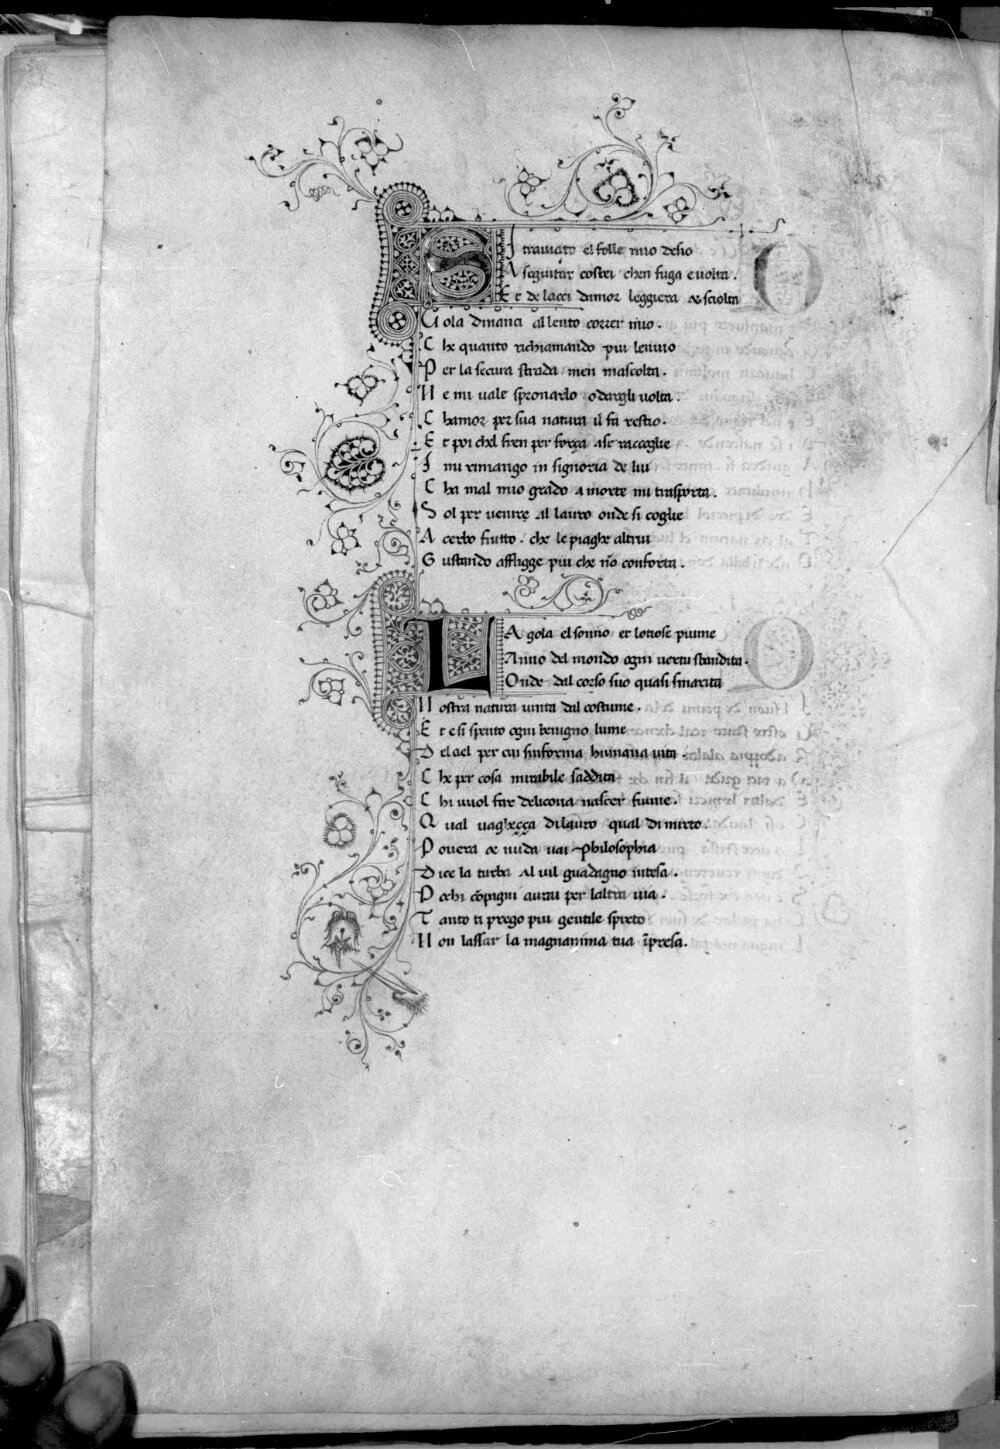 SI traviato el folle mio desio
A seguitar costei / chen fuga e volta .
Et de lacci damor leggiera & sciolta
Vola dinanci al lento correr mio .
Che quanto richiamando piu lenvio
Per la secura strada / men mascolta .
Ne mi vale spronarlo o dargli volta .
Chamor per sua natura il fa restio .
Et poi chel fren per força a se raccoglie
I mi rimango in signoria de lui
Cha mal mio grado a morte mi trasporta .
Sol per venire al lauro onde si coglie
Acerbo frutto . che le piaghe altrui
Gustando affligge piu che nō conforta .
LA gola el sonno et lotiose piume
Anno del mondo ogni vertu sbandita .
Onde dal corso suo quasi smarita
Nostra natura vinta dal costume .
Et e si spento ogni benigno lume
Del ciel per cui sinforma humana vita .
Che per cosa mirabile saddita
Chi vuol far delicona nascer fiume .
Qual vagheçça di lauro qual di mirto
Povera & nuda vai Philosophia
Dice la turba al vil guadagno intesa .
Pochi cōpagni avrai per laltra via .
Tanto ti prego piu gentile spirto
Non lassar la magnanima tua īpresa .